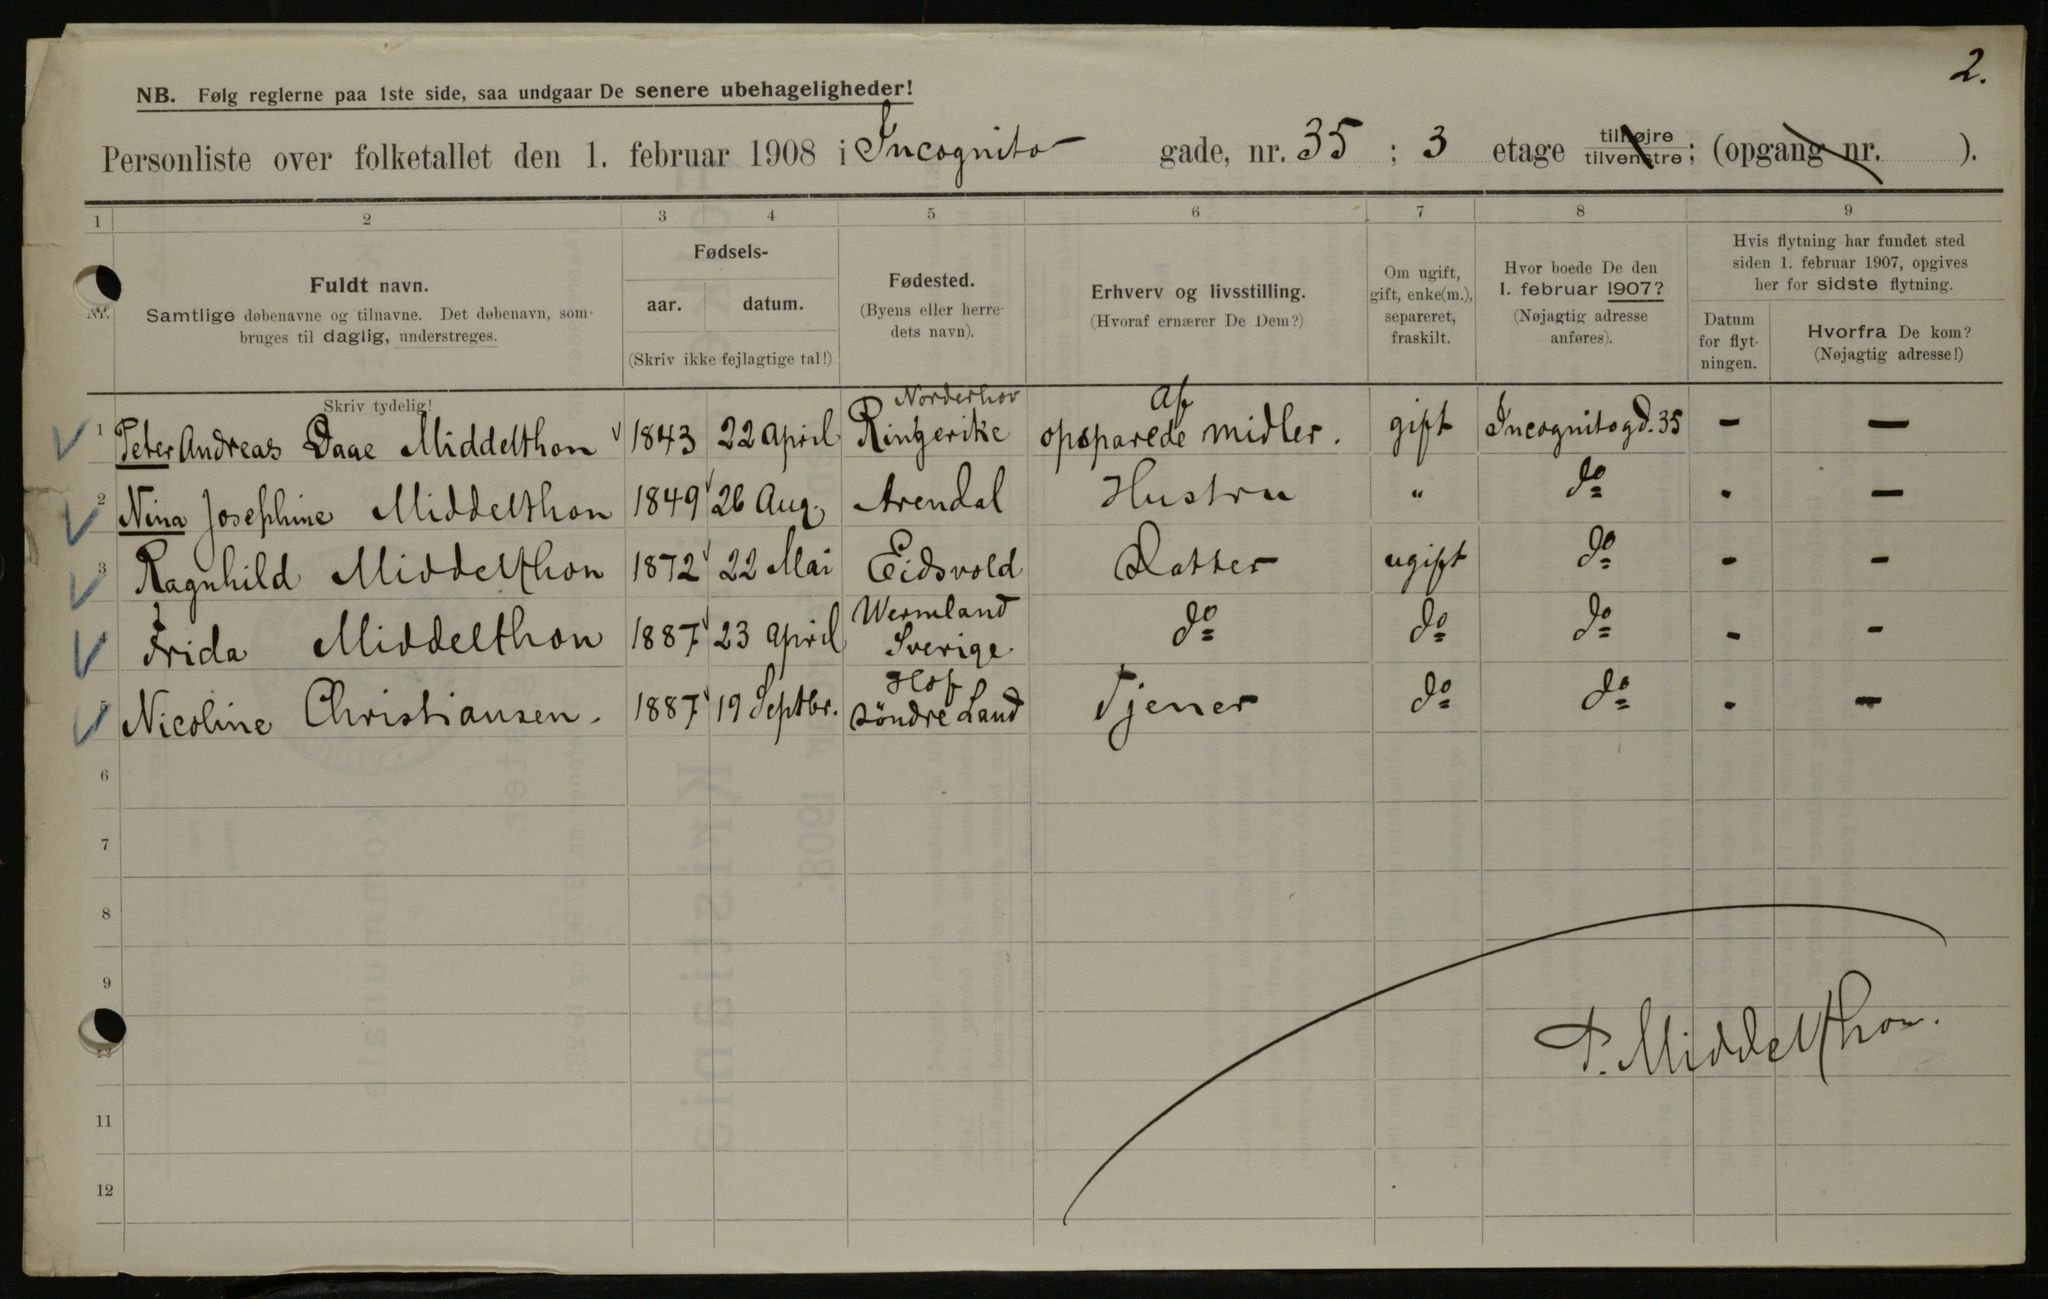 2.
NB. Følg reglerne paa 1ste side, saa undgaar De senere ubehageligheder!
Personliste over folketallet den 1. februar 1908 i Incognito gade, nr. 35 ; 3 etage tilhøjre tilvenstre ; (opgang nr. ).
1 2 3 4 5 6 7 8 9
Nr.
Fuldt navn.
Samtlige døbenavne og tilnavne. Det døbenavn, som bruges til daglig, understreges.
Skriv tydelig!
Fødsels-
aar. datum.
(Skriv ikke fejlagtige tal!)
Fødested.
(Byens eller herre-
dets navn).
Erhverv og livsstilling.
(Hvoraf ernærer De Dem?)
Om ugift,
gift, enke(m.),
separeret,
fraskilt.
Hvor boede De den
1. februar 1907?
(Nøjagtig adresse
anføres).
Hvis flytning har fundet sted
siden 1. februar 1907, opgives
her for sidste flytning.
Datum
for flyt-
ningen.
Hvorfra De kom?
(Nøjagtig adresse!)
1 Peter Andreas Daae Middelthon 1843 22 April Norderhov Ringerike Af opsparede midler. gift Incognitogd. 35 - -
2 Nina Josephine Middelthon 1849 26 Aug. Arendal Hustru " do - -
3 Ragnhild Middelthon 1872 22 Mai Eidsvold Datter ugift do - -
Frida Middelthon 1887 23 April Wermland Sverige do do do - -
5 Nicoline Christiansen. 1887 19 Septbr. Hof Söndre Land Tjener do do - -
6
7
8
9
P. Middelthon.
10
11
12